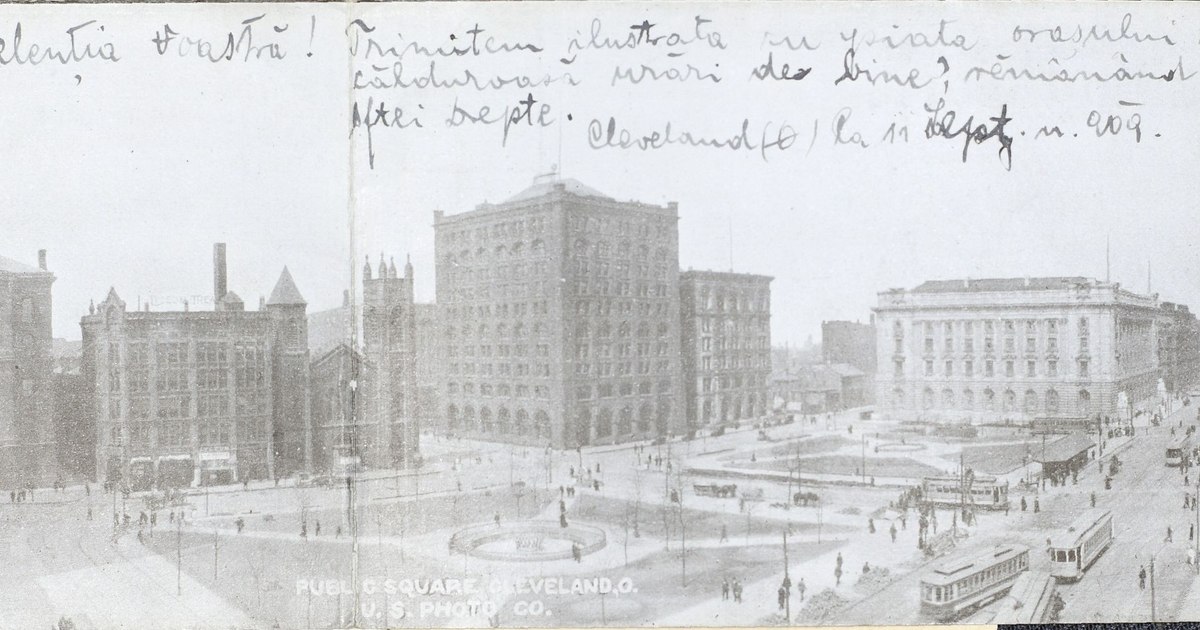 elenția Voastră! Trimitem ilustrata cu piata orașului
călduroasă urări de bine, rêmânând
Cleveland (O) la 11 Sept. n. 909.
PUBLIC SQUARE CLEVELAND, O.
U. S. PHOTO CO.